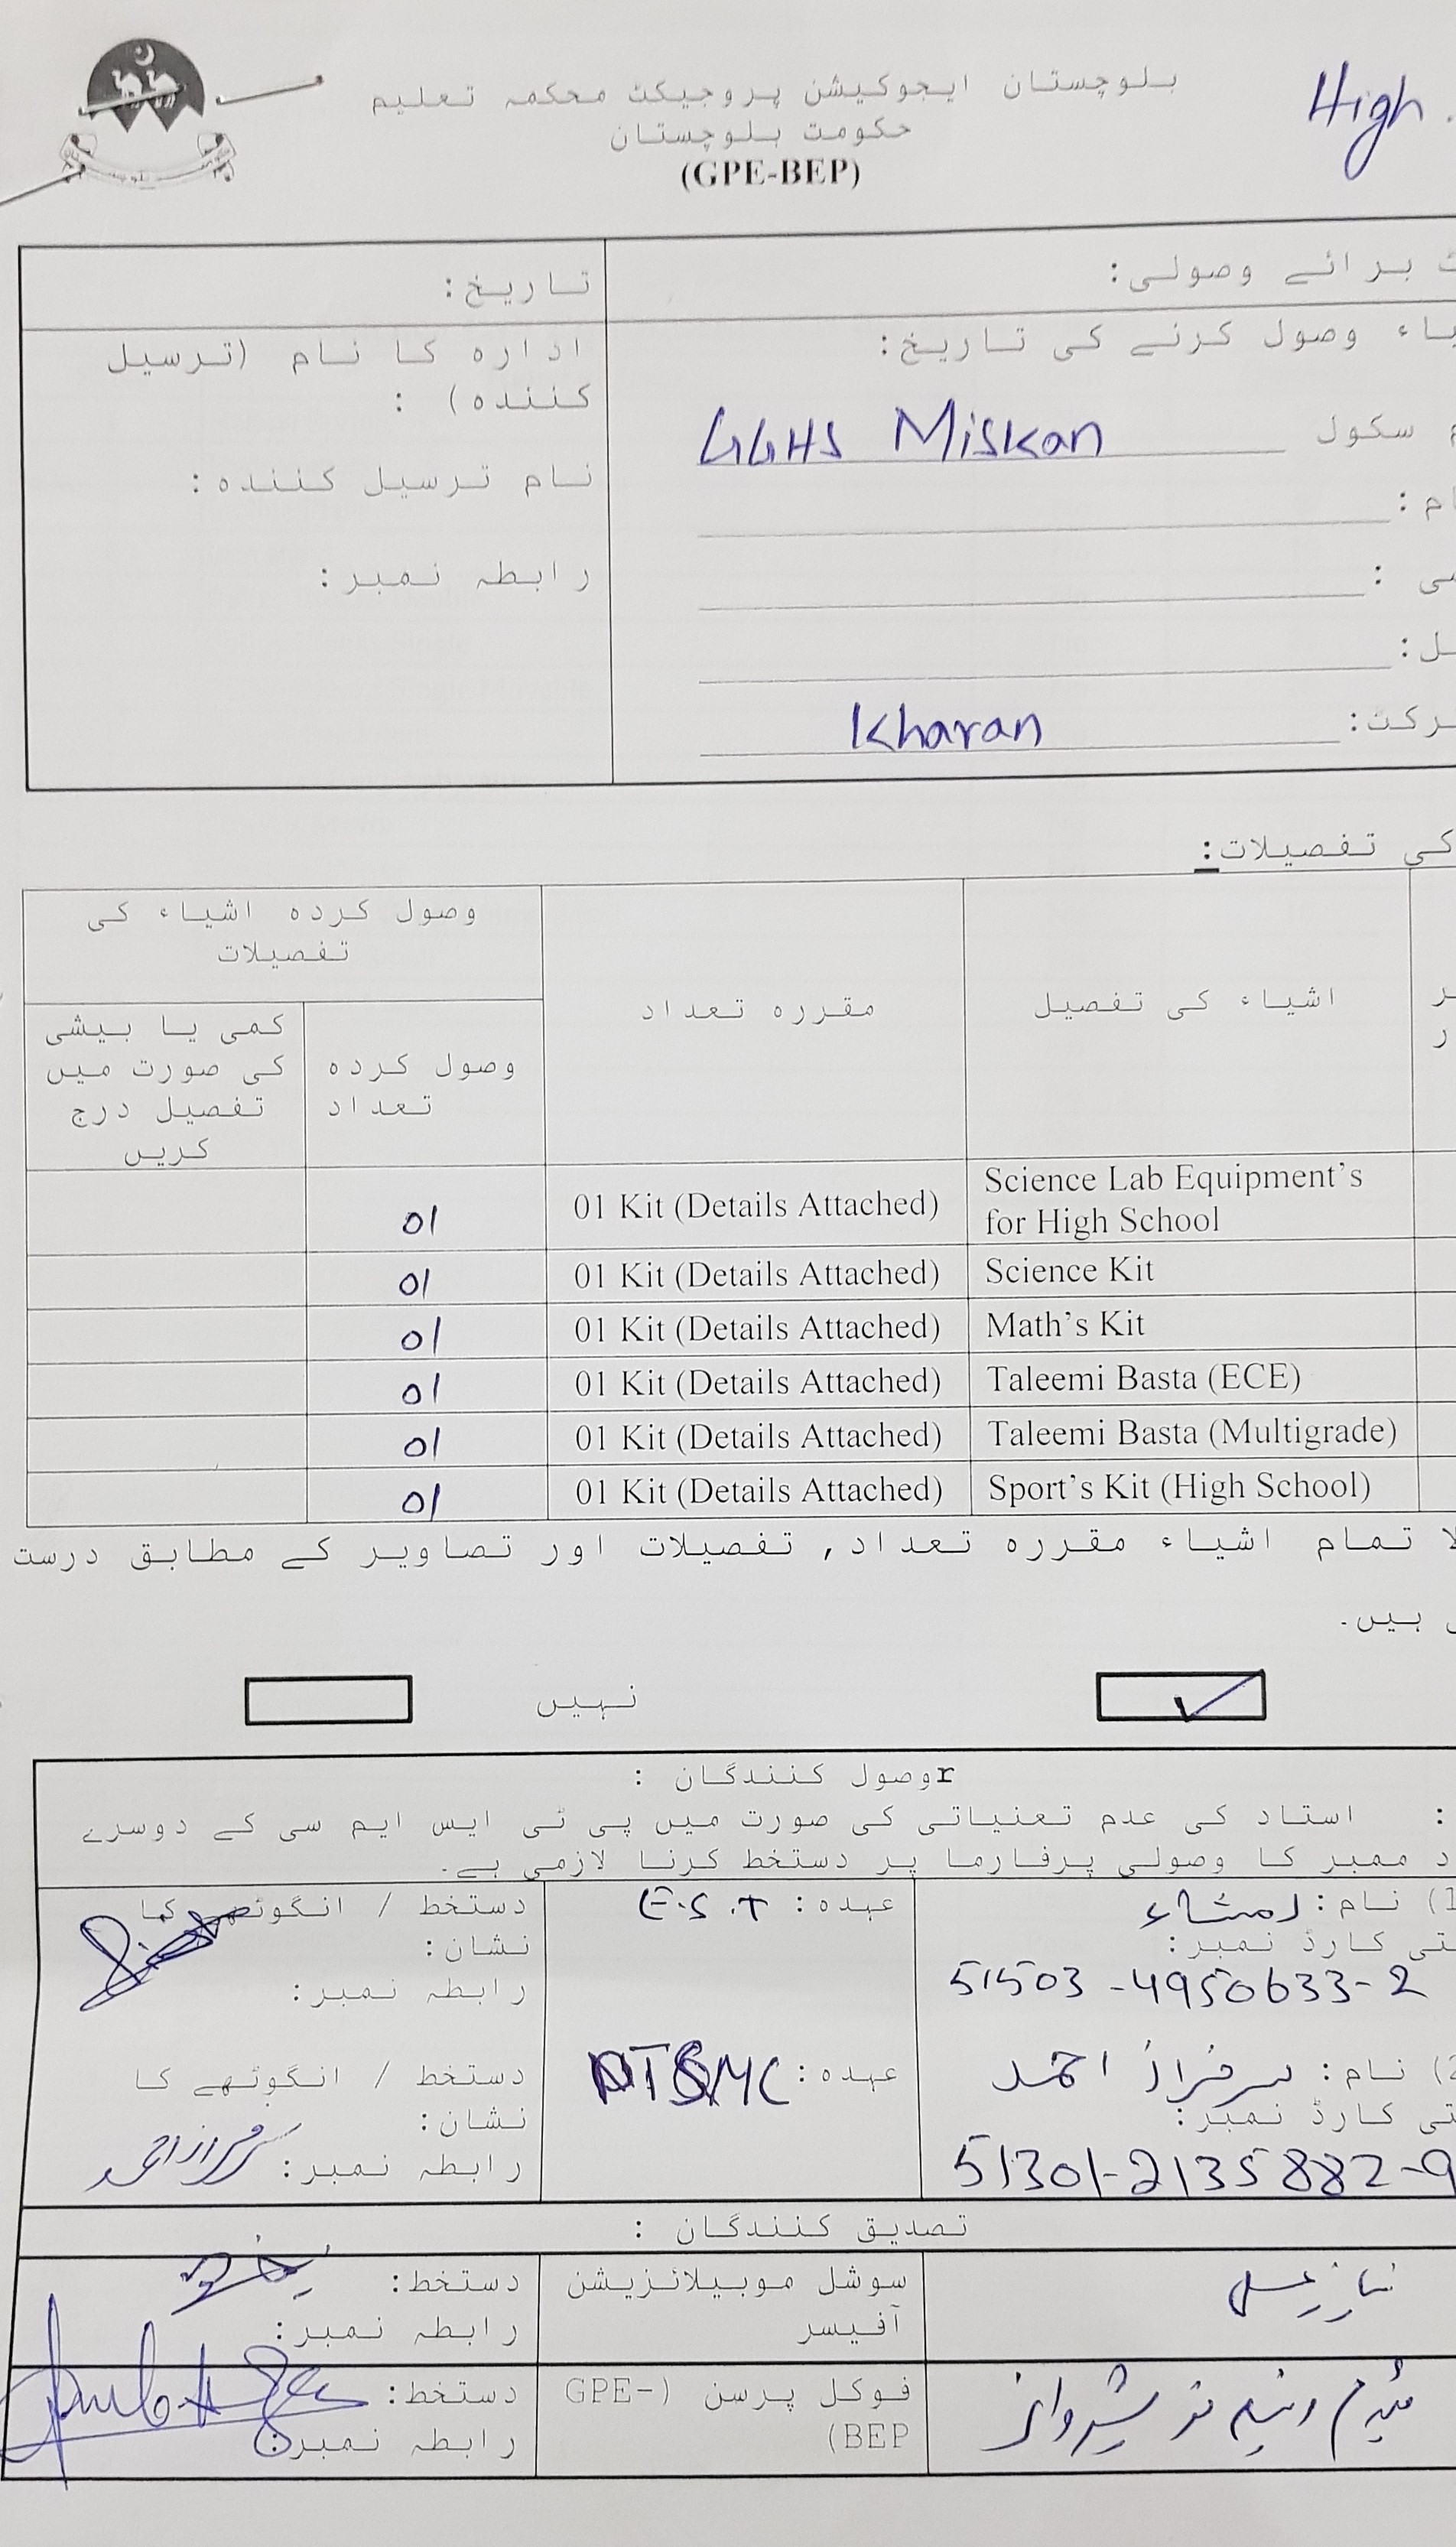 بلوچستان ایجوکیشن پروجیکٹ محکمہ تعلیم
حکومت بلوچستان
(GPE-BEP)
High
برائے وصولی:
تاریخ:
وصول کرنے کی تاریخ:
سکول GGHS Miskan
Kharan
ادارہ کا نام (ترسیل
کنندہ) :
نام ترسیل کنندہ:
رابطہ نمبر:
کی تفصیلات:
اشیاء کی تفصیل
مقررہ تعداد
وصول کردہ اشیاء کی
تفصیلات
وصول کردہ
تعداد
کمی یا بیشی
کی صورت میں
تفصیل درج
کریں
Science Lab Equipment's
for High School
01 Kit (Details Attached)
01
Science Kit 01 Kit (Details Attached) 01
Math's Kit 01 Kit (Details Attached) 01
Taleemi Basta (ECE) 01 Kit (Details Attached) 01
Taleemi Basta (Multigrade) 01 Kit (Details Attached) 01
Sport's Kit (High School) 01 Kit (Details Attached) 01
تمام اشیاء مقررہ تعداد, تفصیلات اور تصاویر کے مطابق درست
ہیں۔
نہیں
rوصول کنندگان :
: استاد کی عدم تعنیاتی کی صورت میں پی ٹی ایس ایم سی کے دوسرے
ممبر کا وصولی پرفارما پر دستخط کرنا لازمی ہے۔
نام:
کارڈ نمبر:
51503-4950633-2
عہدہ: E.S.T
دستخط / انگوٹھے کا
نشان:
رابطہ نمبر:
نام: سرفراز احمد
کارڈ نمبر:
51301-2135882-9
عہدہ:
دستخط / انگوٹھے کا
نشان:
رابطہ نمبر: سرفراز احمد
تصدیق کنندگان :
سوشل موبیلائزیشن
آفیسر
دستخط:
رابطہ نمبر:
فوکل پرسن (GPE-
BEP)
دستخط:
رابطہ نمبر: